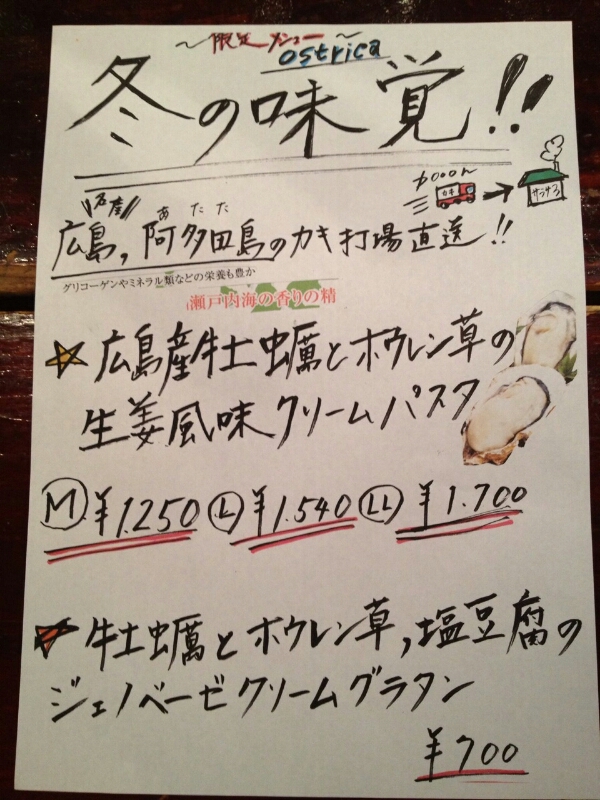 ～限定メニュー～
ostrica
冬の味覚!!
カキ
名産
あたた
広島,阿多田島のカキ打場直送!!
グリコーゲンやミネラル類などの栄養も豊か
瀬戸内海の香りの精
☆広島産牡蠣とホウレン草の
生姜風味クリームパスタ
Ⓜ¥1.250 Ⓛ¥1.540 LL ¥1.700
牡蠣とホウレン草,塩豆腐の
ジェノベーゼクリームグラタン
¥700